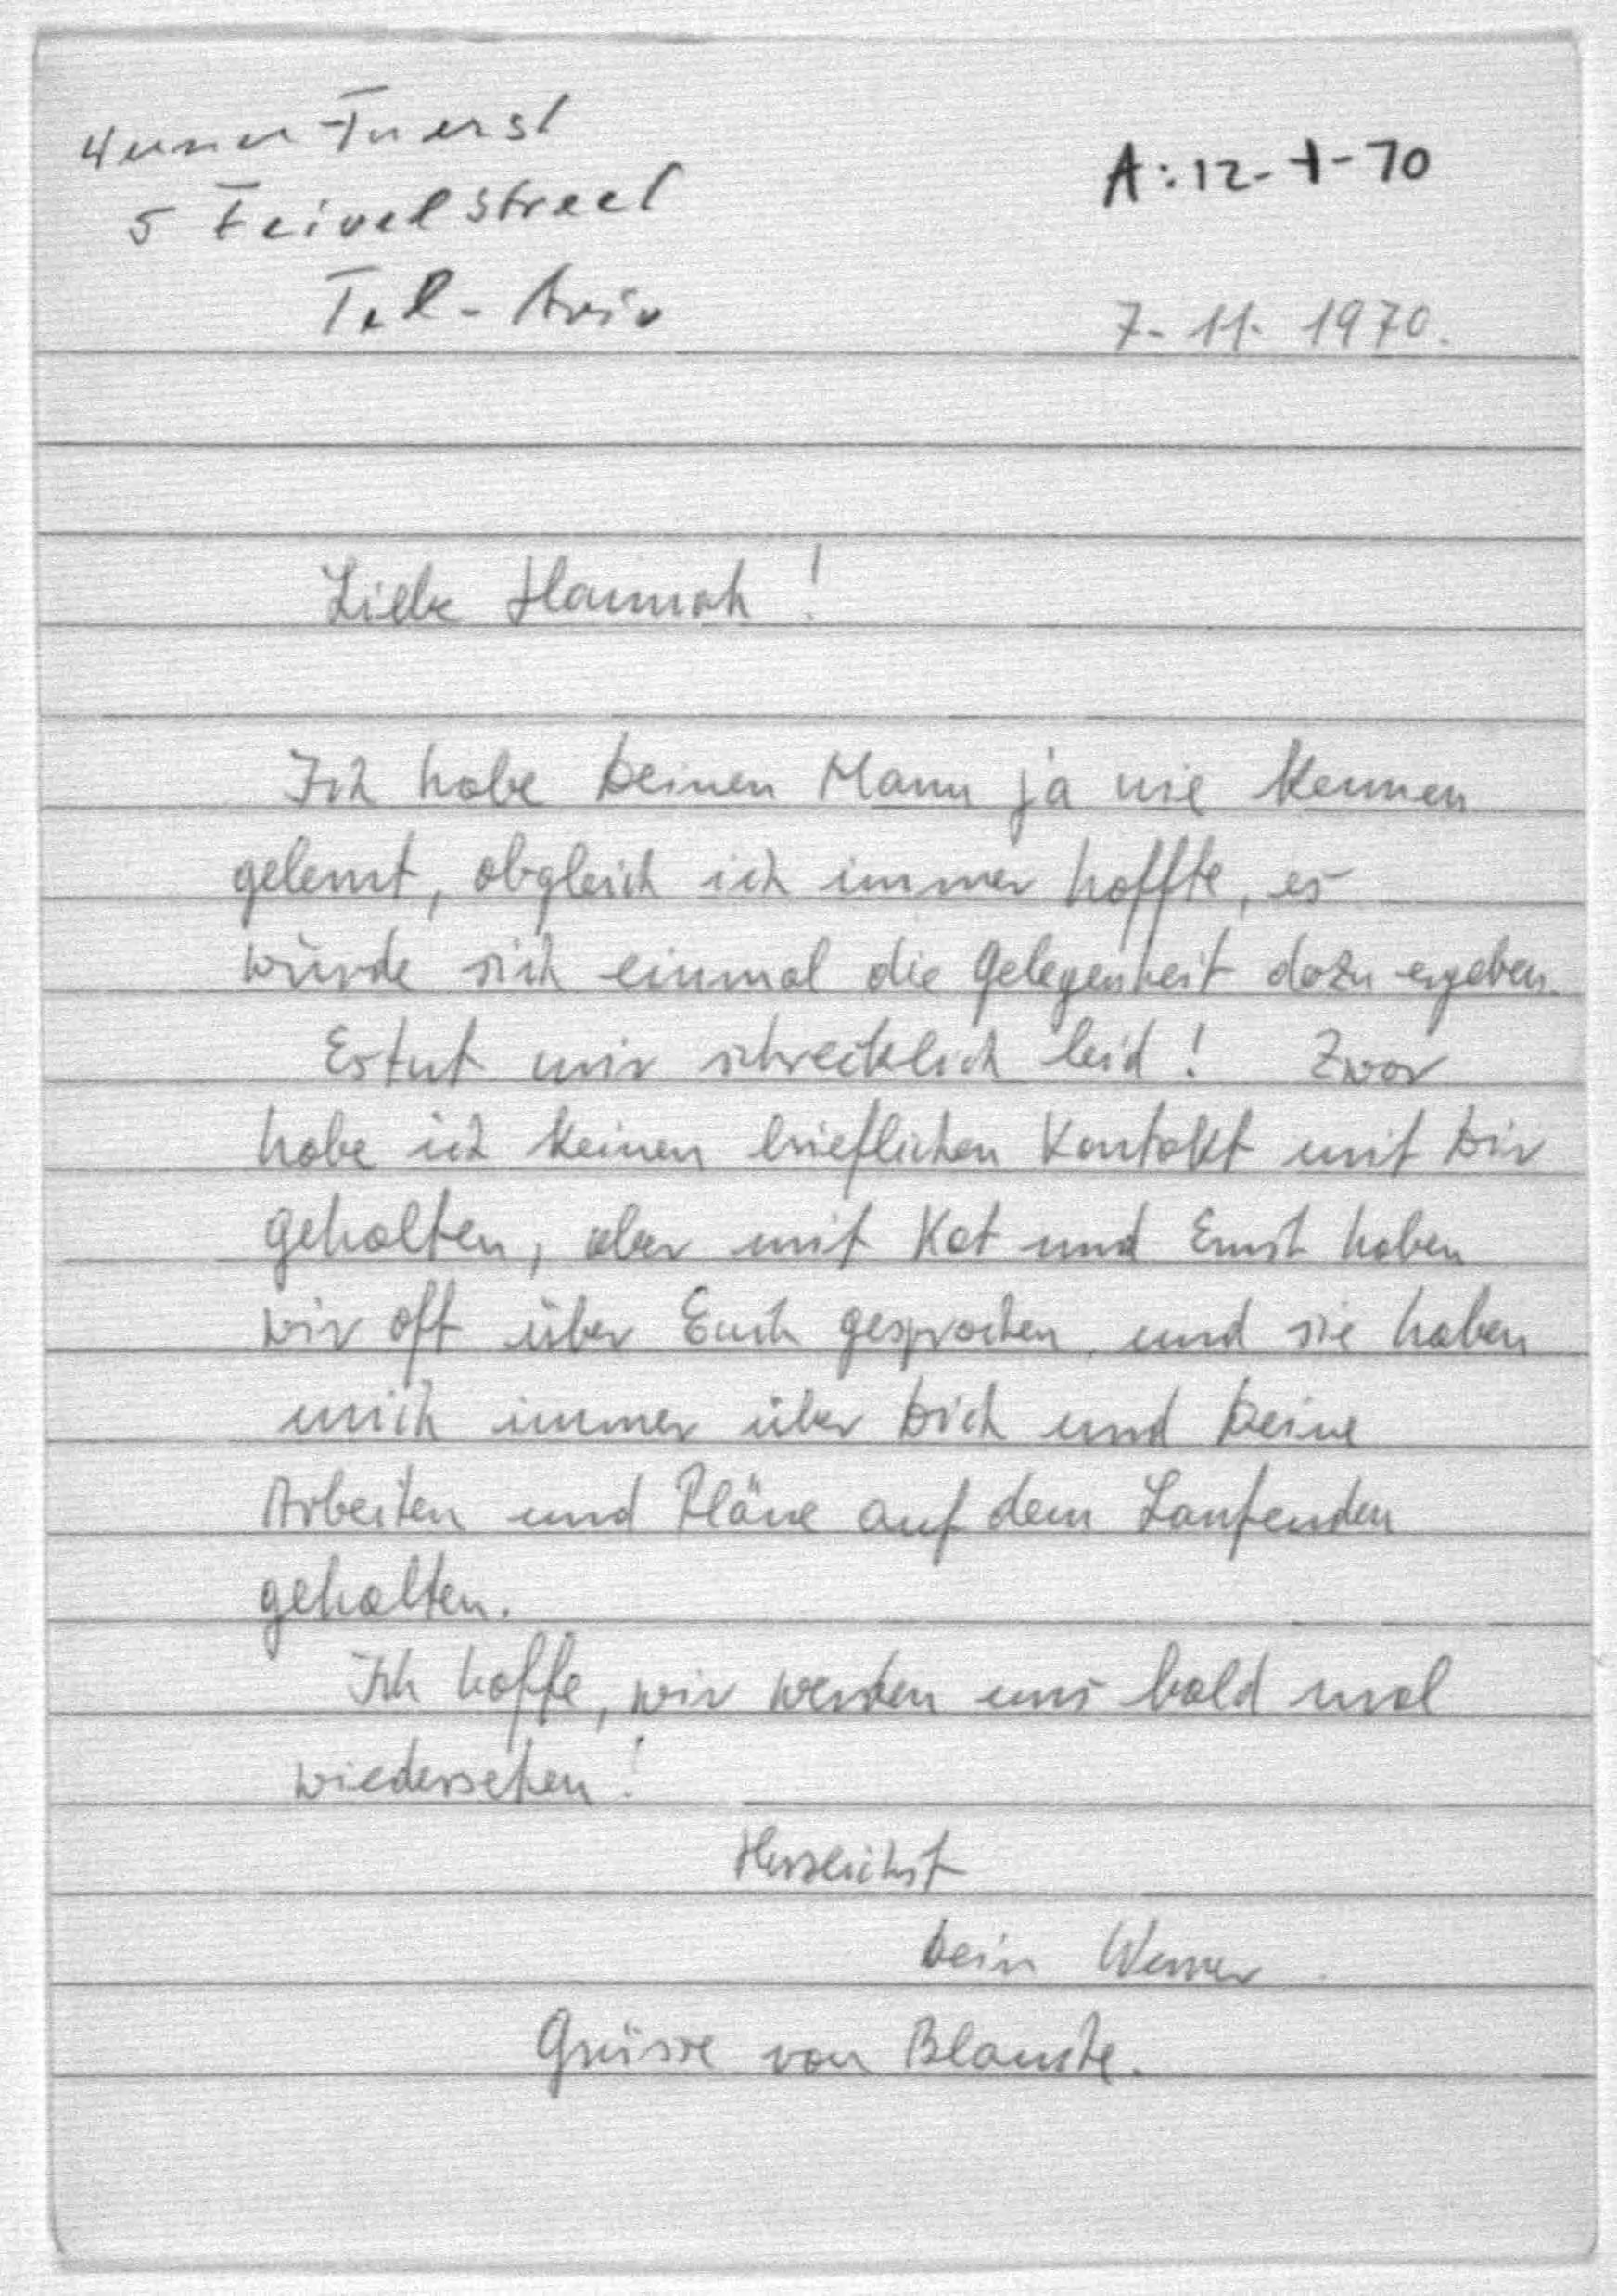 Werner Fuerst
5 Feivel Street
Tel-Aviv
A: 12-1-70
7-11-1970.
Liebe Hannah!
Ich habe Deinen Mann ja nie kennen
gelernt, obgleich ich immer hoffte, es
würde sich einmal die Gelegenheit dazu ergeben.
Es tut mir schrecklich leid! Zwar
habe ich keinen brieflichen Kontakt mit Dir
gehalten, aber mit Kät und Ernst haben
wir oft über Euch gesprochen und sie haben
mich immer über Dich und Deine
Arbeiten und Pläne auf dem Laufenden
gehalten.
Ich hoffe, wir werden uns bald mal
wiedersehen!
Herzlichst
Dein Werner
Grüsse von Blanche.